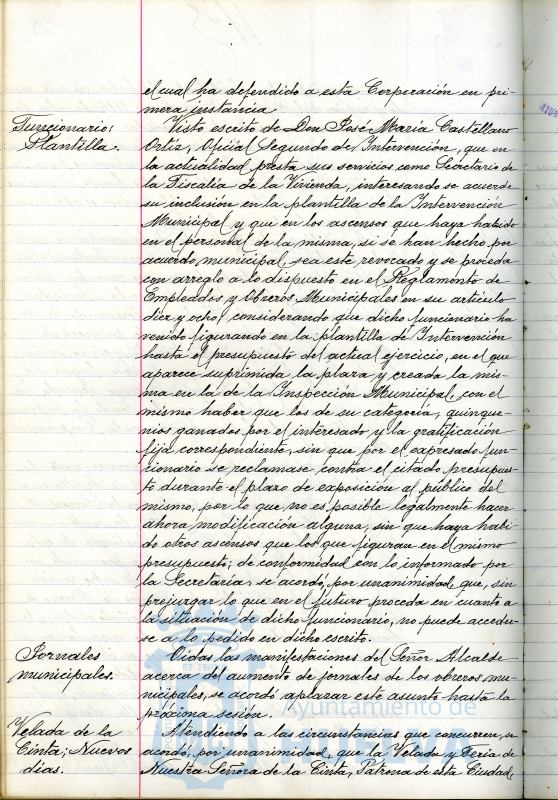 el cual ha defendido a esta Corporación en pri-
mera instancia
Funcionario:
Plantilla.
Visto escrito de Don José María Castellano
Ortiz, Oficial Segundo de Intervención, que en
la actualidad presta sus servicios como Secretario de
la Fiscalía de la Vivienda, interesando se acuerde
su inclusión en la plantilla de la Intervención
Municipal y que en los ascensos que haya habido
en el personal de la misma, si se han hecho por
acuerdo municipal, sea este revocado y se proceda
con arreglo a lo dispuesto en el Reglamento de
Empleados y Obreros Municipales en su artículo
diez y ocho; considerando que dicho funcionario ha
venido figurando en la plantilla de Intervención
hasta el presupuesto del actual ejercicio, en el que
aparece suprimida la plaza y creada la mis-
ma en la de la Inspección Municipal, con el
mismo haber que los de su categoría, quinque-
nios ganados por el interesado y la gratificación
fija correspondiente, sin que por el expresado fun-
cionario se reclamase contra el citado presupues-
to durante el plazo de exposición al público del
mismo, por lo que no es posible legalmente hacer
ahora modificación alguna, sin que haya habi-
do otros ascensos que los que figuran en el mismo
presupuesto; de conformidad con lo informado por
la Secretaría, se acordó, por unanimidad, que, sin
prejuzgar lo que en el futuro proceda en cuanto a
la situación de dicho funcionario, no puede acceder-
se a lo pedido en dicho escrito.
Jornales
municipales.
Oidas las manifestaciones del Señor Alcalde
acerca del aumento de jornales de los obreros mu-
nicipales, se acordó aplazar este asunto hasta la
próxima sesión.
Ayuntamiento de
Velada de la
Cinta; Nuevos
días.
Atendiendo a las circunstancias que concurren, se
acordó, por unanimidad, que la Velada y Feria de
Nuestra Señora de la Cinta, Patrona de esta Ciudad,